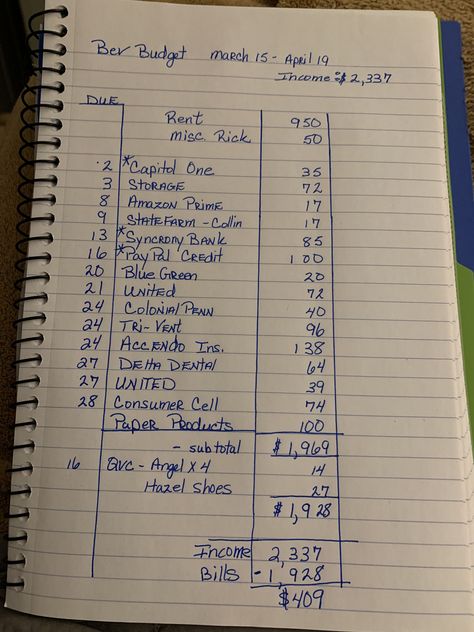 Bev Budget March 15 - April 19
Income: $2,337
DUE
Rent 950
Misc. Rick 50
2 *Capitol One 35
3 STORAGE 72
8 Amazon Prime 17
9 STATEFARM - Collin 17
13 *Syncrony Bank 85
16 *PayPal Credit 100
20 Blue Green 20
21 UNITED 72
24 Colonial Penn 40
24 Tri-Vent 96
24 ACCENDO Ins. 138
27 Delta DENTAL 64
27 UNITED 39
28 Consumer Cell 74
Paper Products 100
- subtotal $1,969
16 QVC - Angel x 4 14
Hazel Shoes 27
$1,928
Income 2,337
Bills -1,928
$409